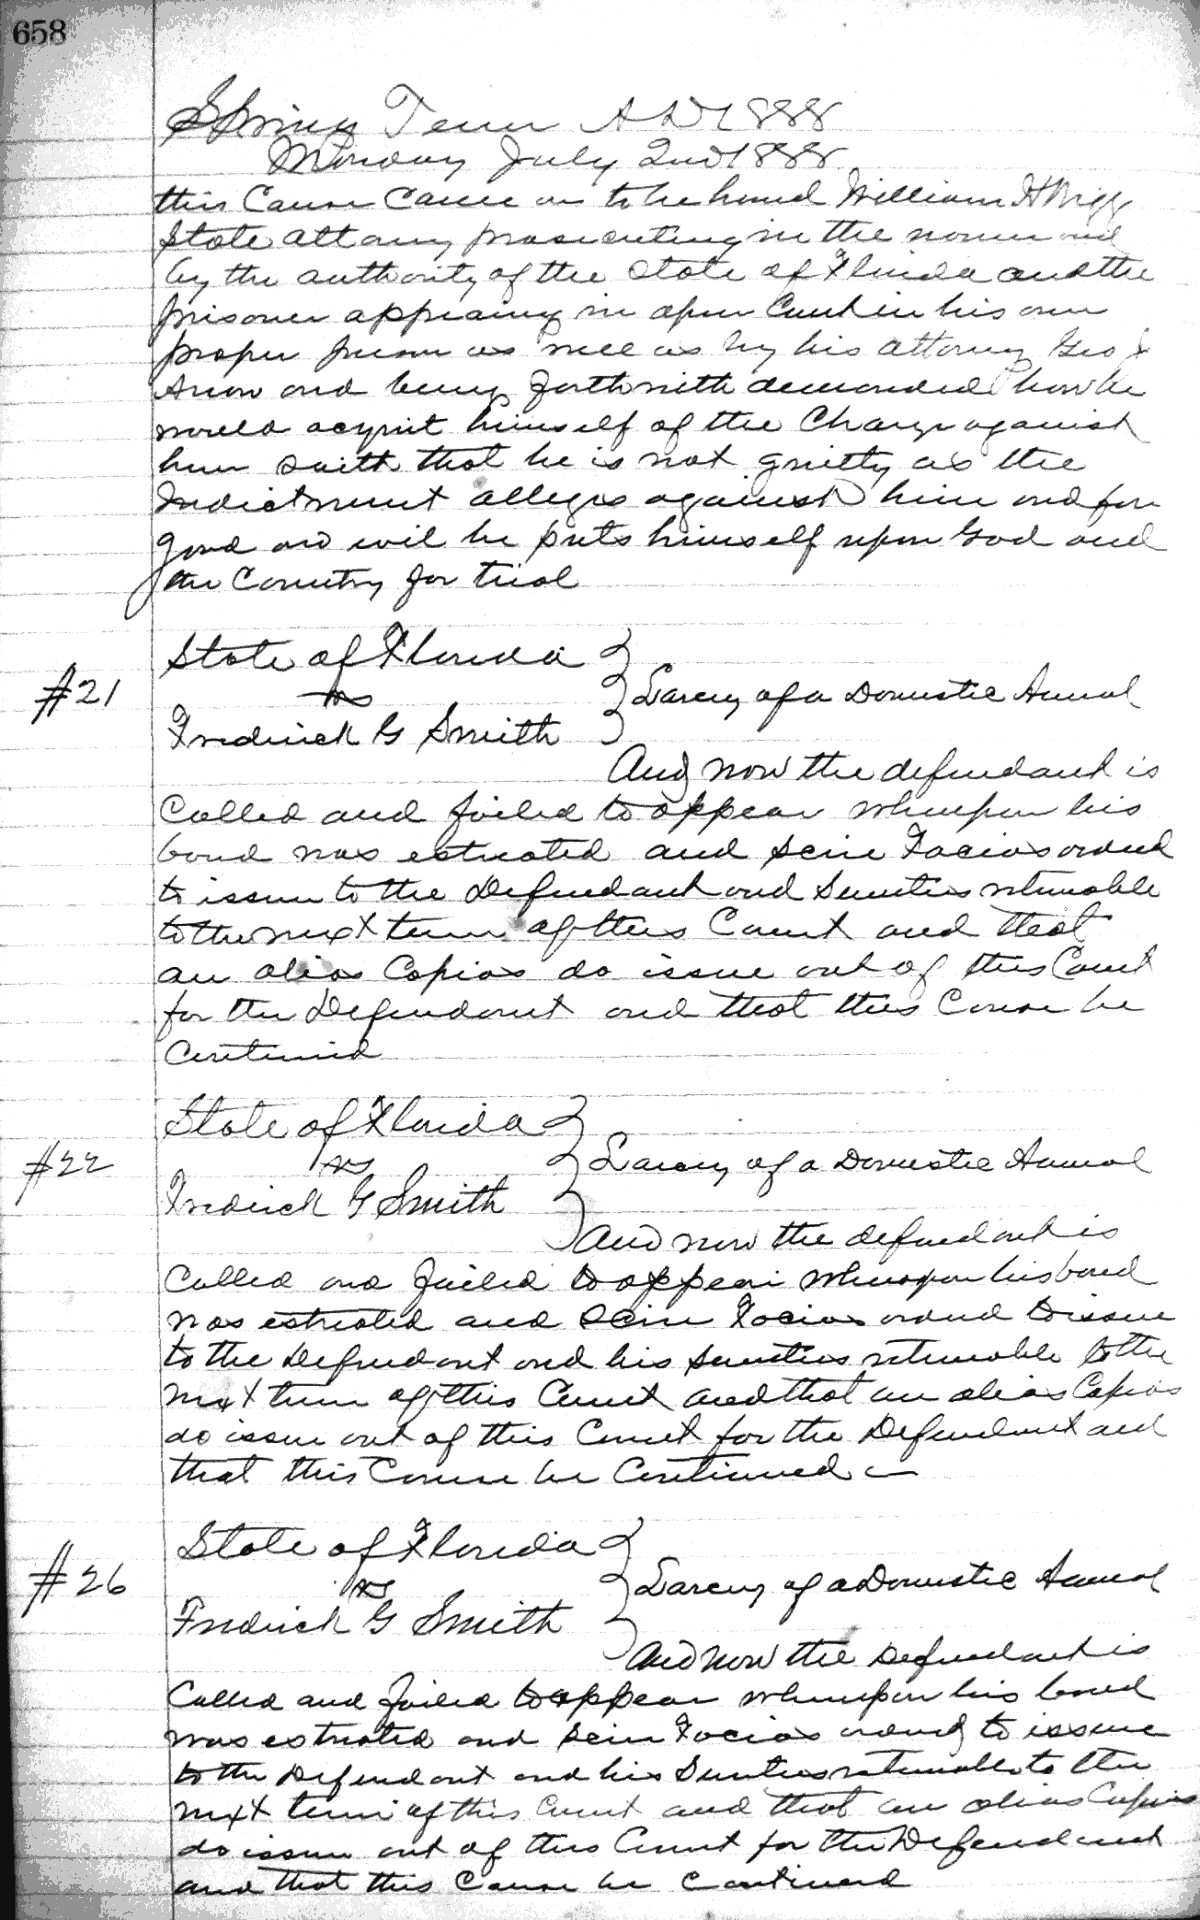 658
Spring Term A D 1888
Monday July 2nd 1888
this Cause Came on to be heard William H
State attorny prosecuting in the name and
by the authority of the State of Florida and the
prisoner appearing in open Court in his own
proper person as well as by his attorney Geo
and being forthwith demanded how he
would acquit himself of the Charge against
him saith that he is not guilty as the
Indictment alleges against him and for
good and evil he puts himself upon God and
the Country for trial
State of Florida
#21 vs Larceny of a Domestic Animal
Fredrick G Smith
And now the defendant is
Called and failed to appear whereupon his
bond was estreated and Scire Facias ordered
to issue to the Defendant and Sureties returnable
to the next term of this Court and that
an alias Capias do issue out of this Court
for the Defendant and that this Cause be
Continued
State of Florida
#22 vs Larceny of a Domestic Animal
Fredrick G Smith
And now the defendant is
Called and failed to appear whereupon his bond
was estreated and Scire Facias ordered to issue
to the Defendant and his Sureties returnable to the
next term of this Court and that an alias Capias
do issue out of this Court for the Defendant and
that this Cause be Continued
State of Florida
#26 vs Larceny of a Domestic Animal
Fredrick G Smith
And now the Defendant is
Called and failed to appear whereupon his bond
was estreated and Scire Facias ordered to issue
to the Defendant and his Sureties returnable to the
next term of this Court and that an alias Capias
do issue out of this Court for the Defendant
and that this Cause be Continued